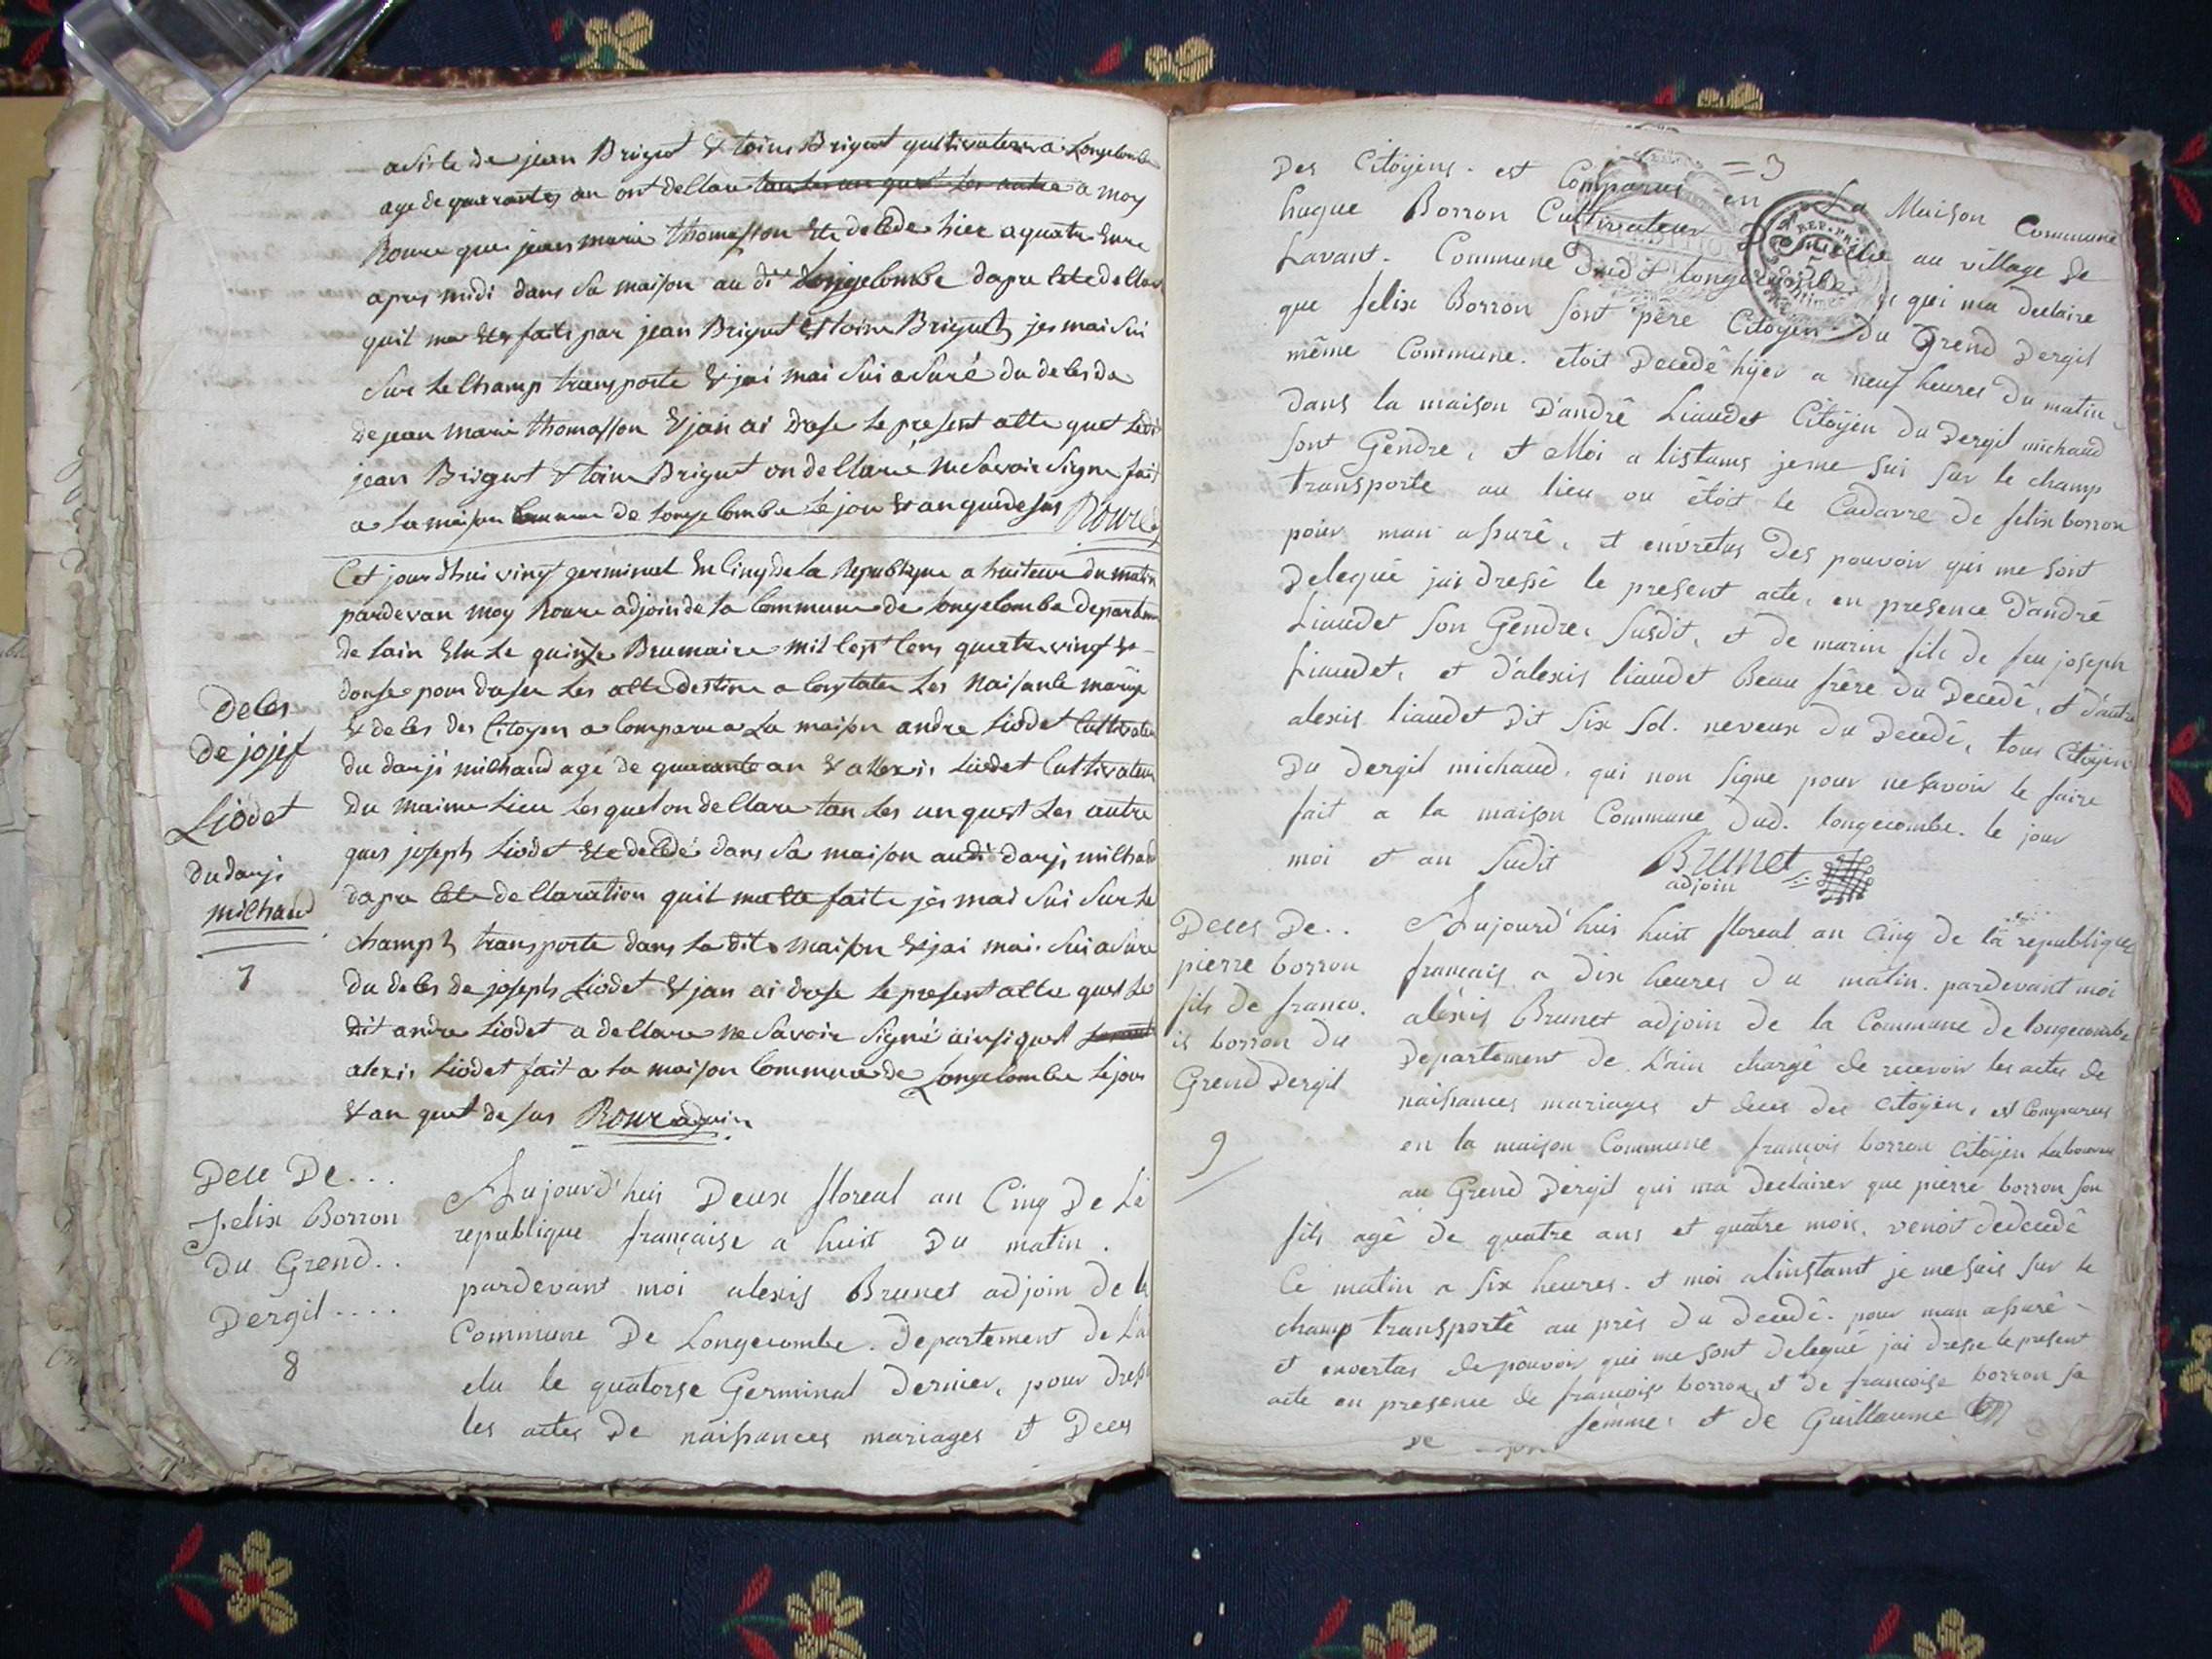 asiste de jean Brigot & toine Brigot qultivateur a Longelombe
age de quarantes an ont dellare tan les un quest les autre a moy
Roure que jean marie thomasson Ete decede hier a quatre heure
apres midi dans sa maison au di Longelombe dapre cete dellar
quil ma ete faite par jean Brigot & toine Brigot jes mai sui
sur le champ transporte & jai mai sui asuré du deces de
de jean marie thomasson & jan ai drase le present atte quet ledi
jean Brigot & toine Brigot on dellaré ne savoir signe fait
a la maison commune de Longelombe le jour & an que desus Roure
Cet jourdhui vingt germinal En cinq de la Republique a huit eure du matin
pardevan moy Roure adjoin de la Commune de longelombe departem
de lain Elu le quinze Brumaire mil cept cens quatre vingt &
douse pour draser les atte destine a constater les naisance mariage
& deces des Citoyen a comparu a La maison andre Liodet Cultivateur
du darji milhaud agé de quarante an & allexis Liodet Cultivateur
du maime Lieu lesquel on dellare tan les un quet les autre
ques joseph Liodet Ete decedé dans sa maison audi darji milhaud
dapre cete dellaration quil ma ete faite jes mai sui sur le
champ transporte dans la dite maison & jai mai sui asure
du deces de joseph Liodet & jan ai drase le present atte quet le
dit andre Liodet a dellare ne savoir signé ainsi quet
alexis Liodet fait a la maison Commune de Longelombe le jour
& an quet de sus Roure adjoin
deces
de josef
Liodet
du darji
milhaud
7
Dece De...
Felix Borron
Du Grend..
Dergil....
8
Aujourd'hui Deux floreal an Cinq De La
republique française a huit Du matin.
pardevant moi alexis Brunet adjoin de la
Commune De Longecombe. Departement de L'ai
elu le quatorse Germinal Dernier, pour dress
les actes De naissances mariages et Deces
= 3
Des Citoyens. est Comparus en La Maison Commune
hugue Borron Cultivateur Domicilié au village de
Lavant. Commune Dud longecombe qui ma declaire
que felix Borron sont père Citoyen du Grend Dergil
même Commune. etoit Decedê hyer a neuf heures Du matin
Dans la maison D'andrê Liaudet Citoyen du Dergil michaud
sont Gendre, et Moi a listams je me sui sur le champ
transporte au lieu ou êtoit le Cadavre de felix borron
pour man assurê, et envretus Des pouvoir qui me sont
Delequé jai Dressé le present acte, en presence D'andré
Liaudet Son Gendre, susdit, et de marin fils de feu joseph
Liaudet, et d'alexis liaudet Beau frère Du Decedê, et d'autre
alexis liaudet Dit six sol. neveux Du Decedê, tous Citoyen
Du Dergil michaud, qui non signe pour ne savoir le faire
fait a la maison Commune Dud. longecombe. le jour
moi et an sudit Brunet
adjoin
Deces De..
pierre borron
fils de franco.
is borron du
Grend Dergil
9
Aujourd'hui huit floreal an cinq de la republique
francais, a Dix heures Du matin. pardevant moi
alexis Brunet adjoin de la Commune de longecombe
Departement de L'ain chargê de recevoir les actes de
naissances mariages et deces des Citoyen, est Comparus
en la maison Commune françois borron Citoyen Laboureur
au Grend Dergil qui ma Declairer que pierre borron son
fils agê de quatre ans et quatre mois, venoit dedecedê
Ce matin a six heures. et moi alinstant je me suis sur le
champ transportê au près Du Decedê. pour man assurê
et envertus de pouvoir qui me sont delequé jai dresse le present
acte en presence de francois borron, et de francoise borron sa
femme, et de Guillaume